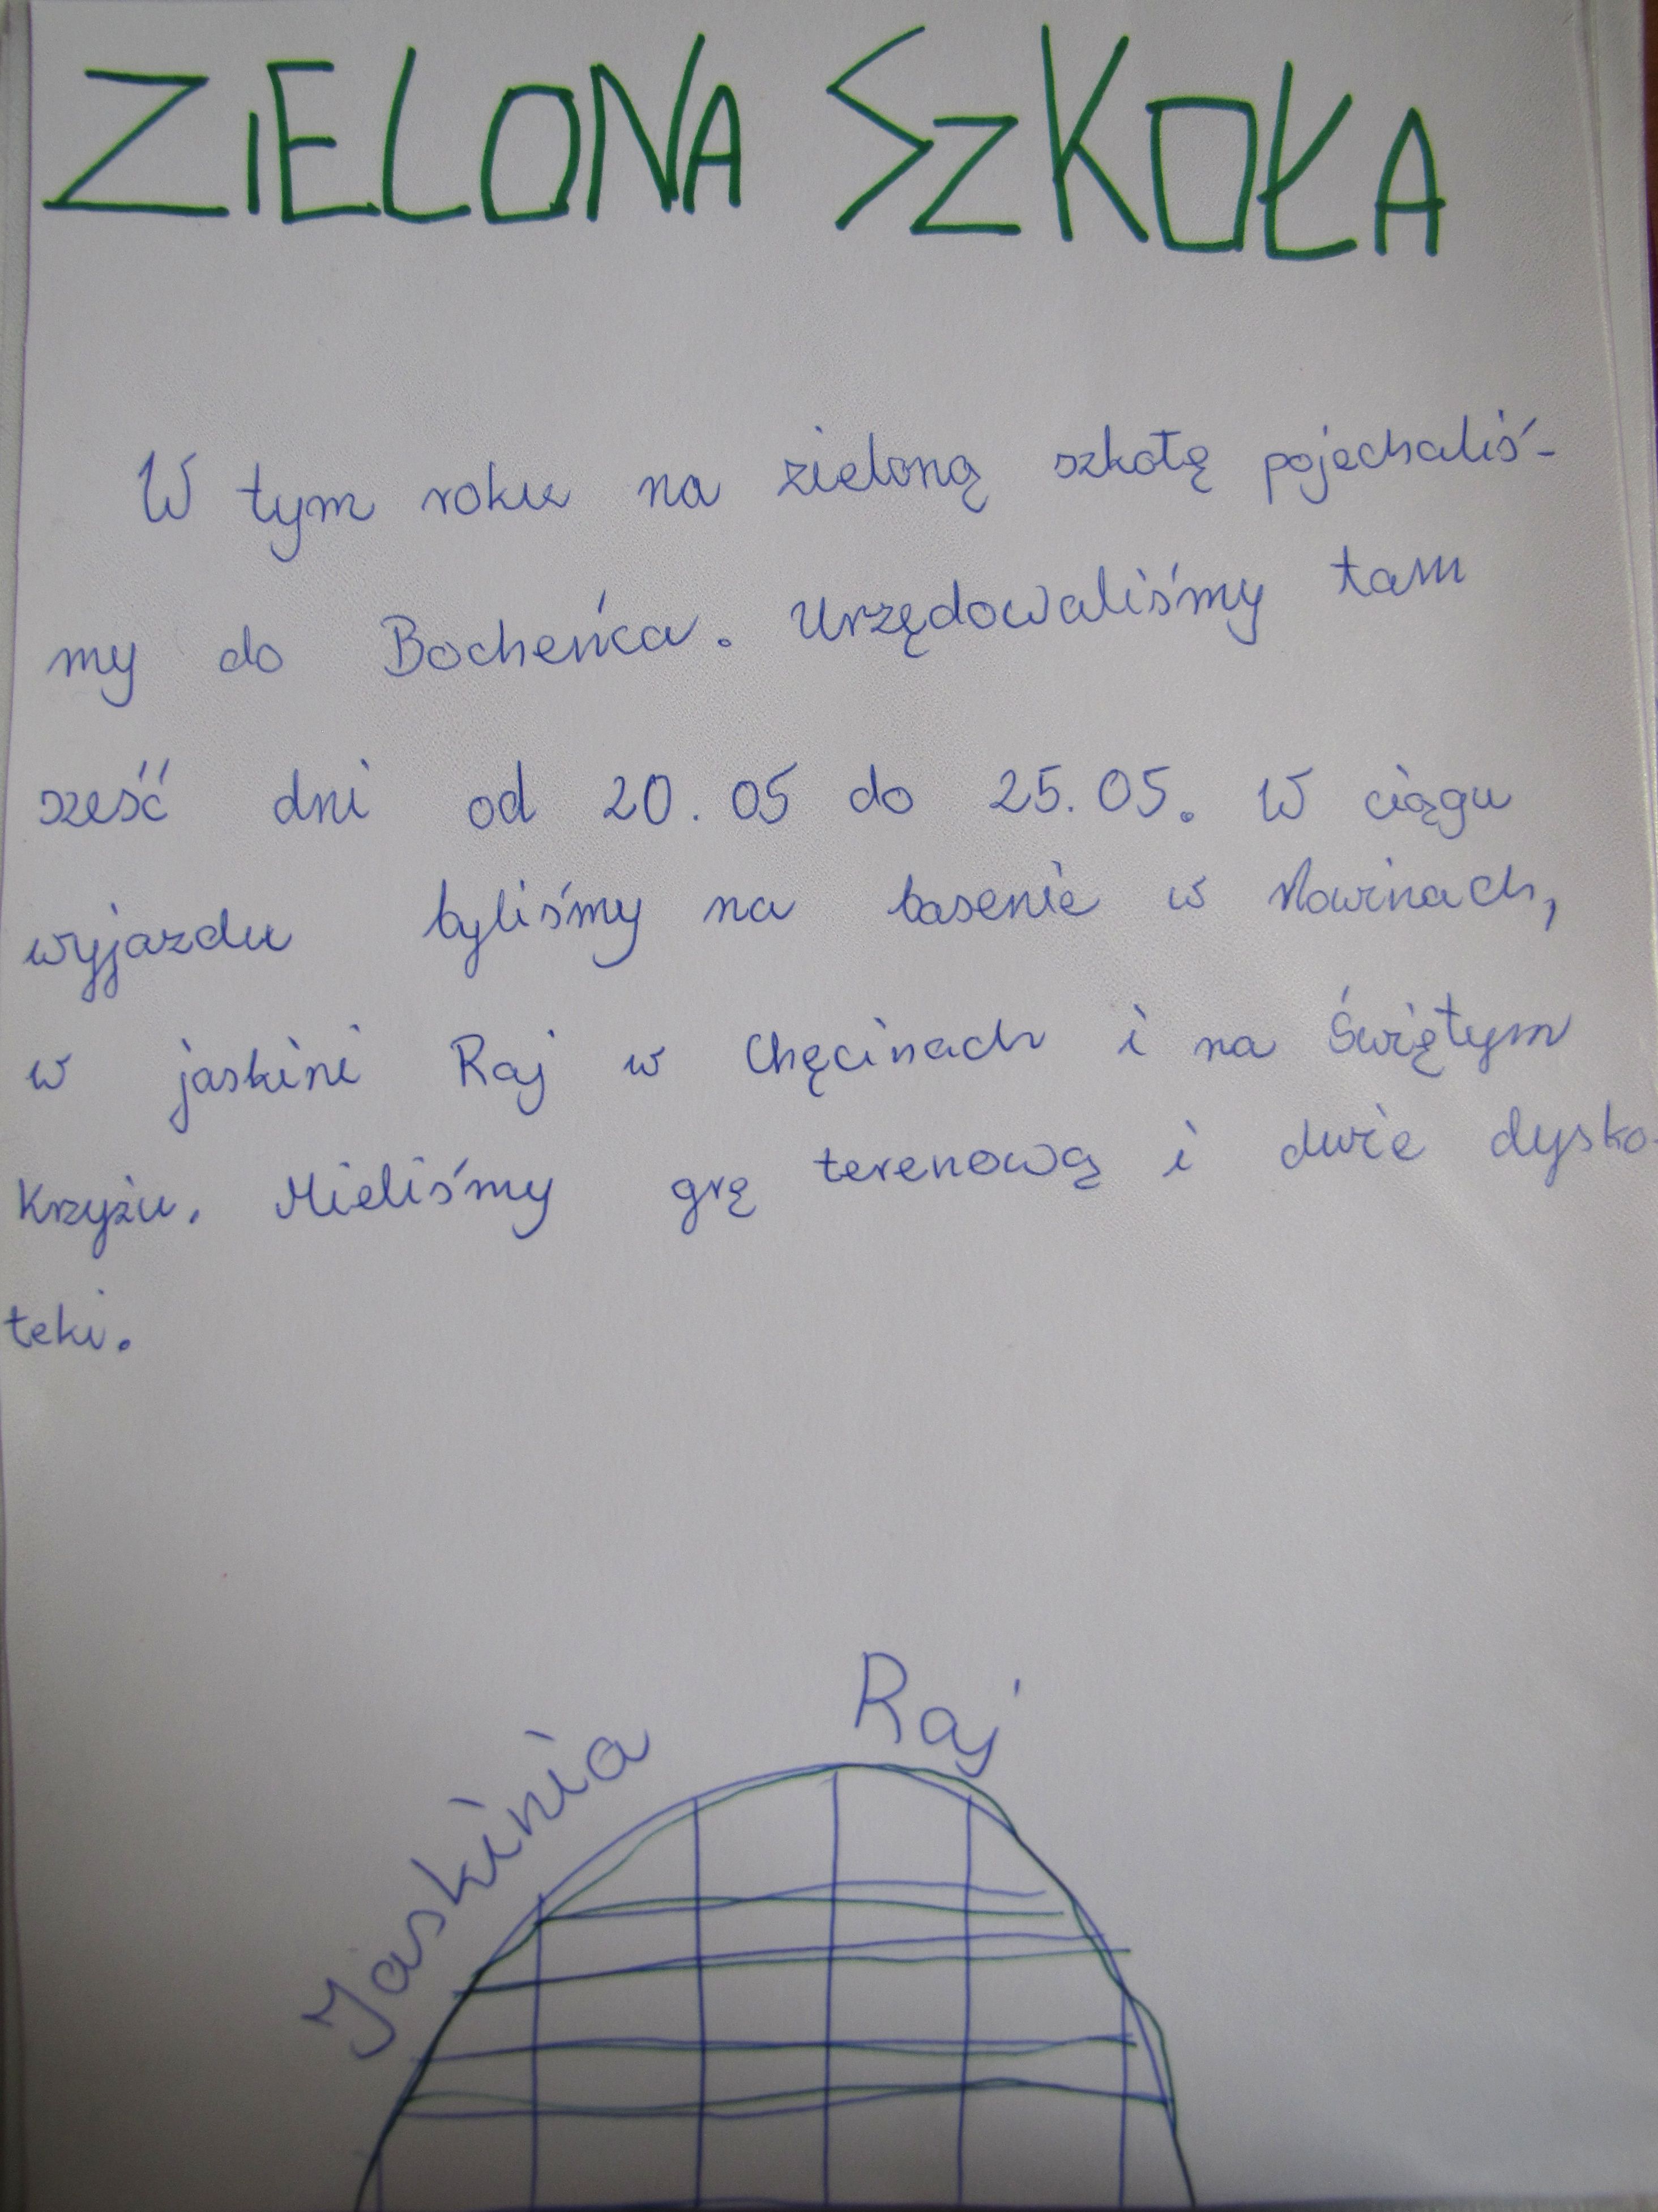 ZIELONA SZKOŁA
W tym roku na zieloną szkołę pojechaliś-
my do Bocheńca. Urzędowaliśmy tam
sześć dni od 20.05 do 25.05. W ciągu
wyjazdu byliśmy na basenie w Nowinach,
w jaskini Raj w Chęcinach i na Świętym
Krzyżu. Mieliśmy grę terenową i dwie dysko-
teki.
Jaskinia Raj